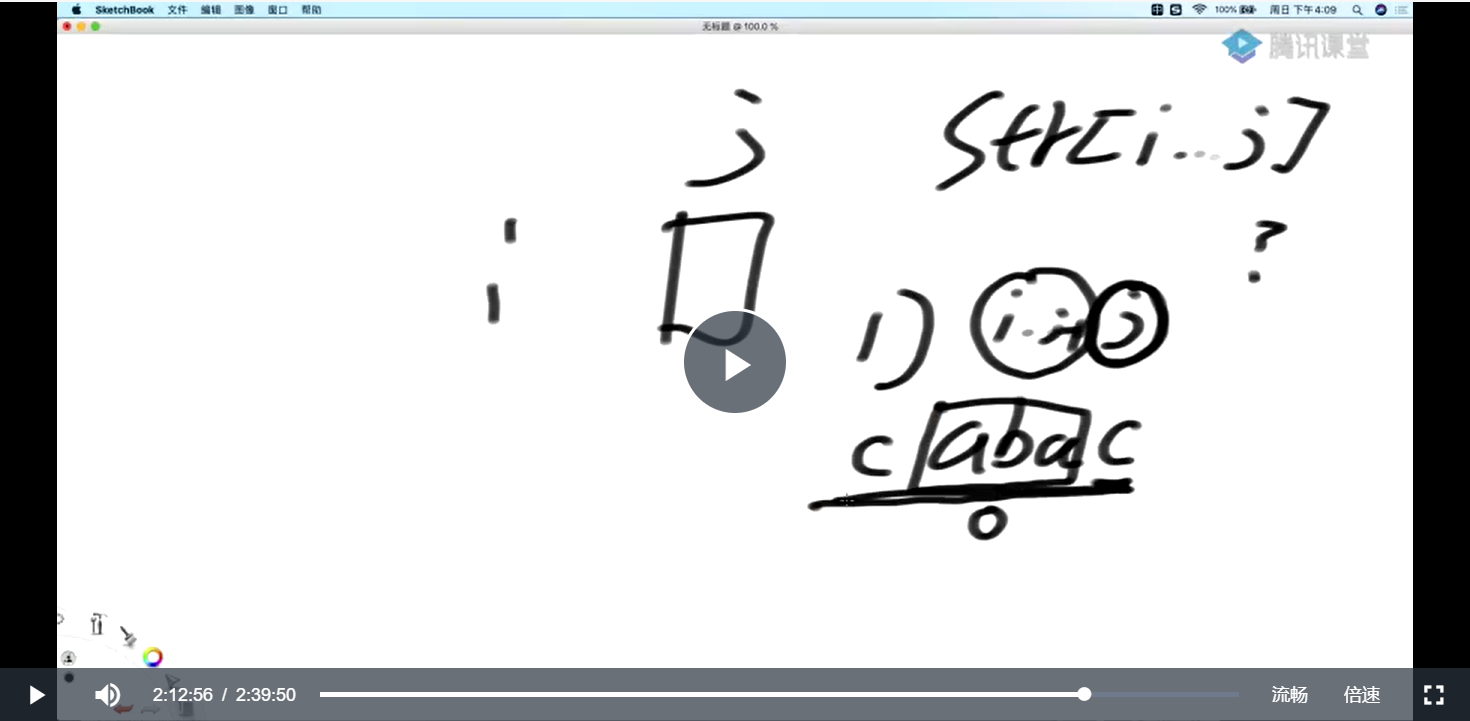 SketchBook 文件 编辑 图像 窗口 帮助 100% 周日 下午4:09
无标题 @ 100.0 %
腾讯课堂
j Str[i...j]
i ?
1) i..j-1 j
c aba c
0
2:12:56 / 2:39:50 流畅 倍速